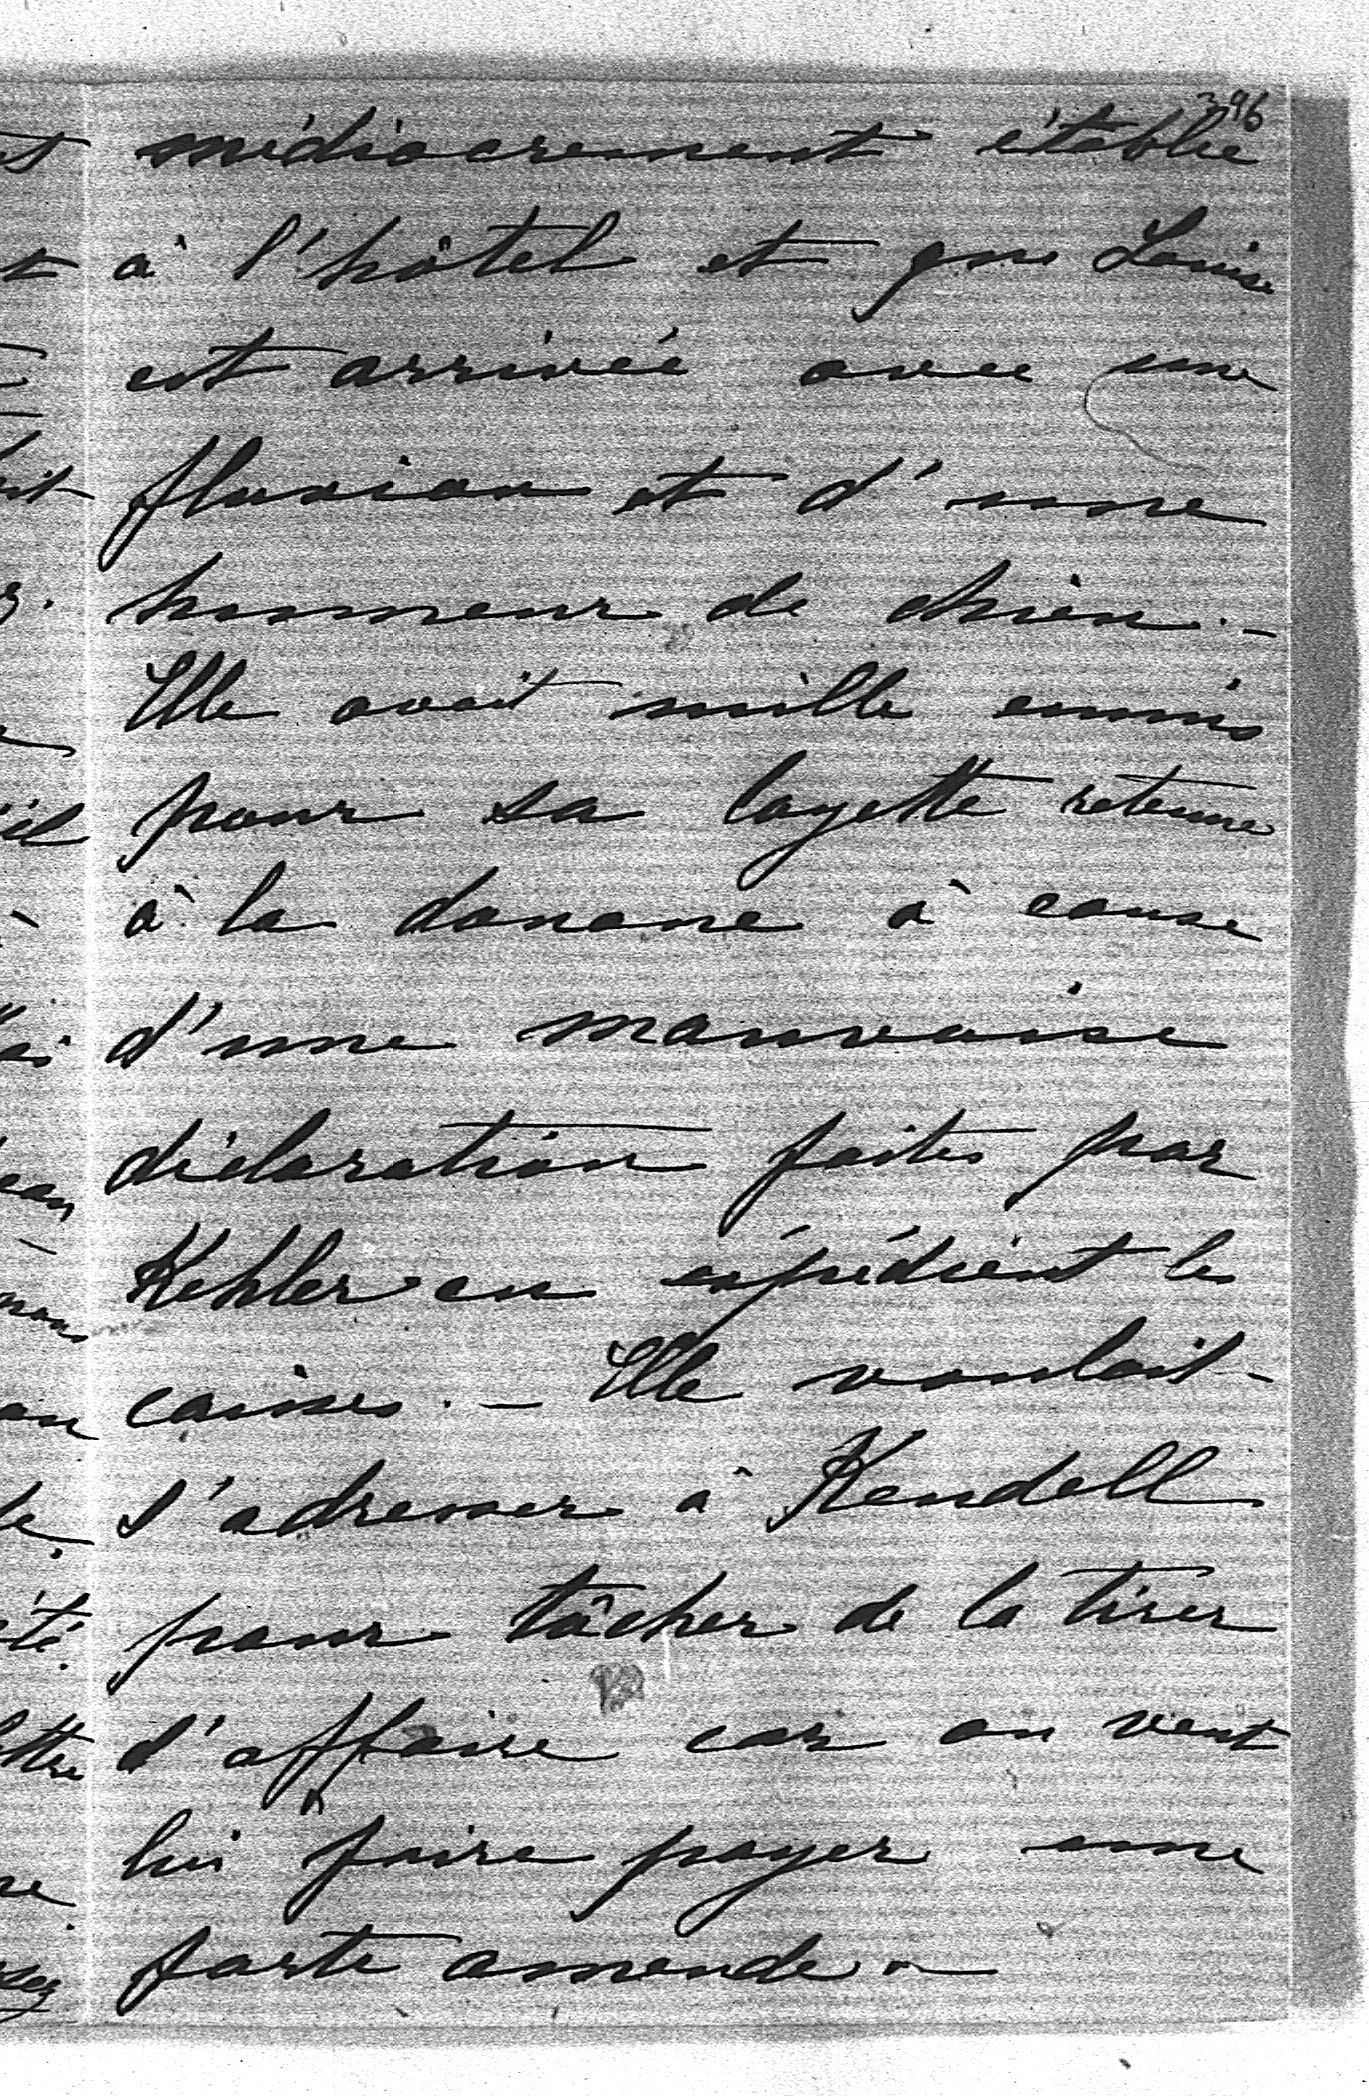 396
médiocrement établie
à l'hôtel et que Louise
est arrivée avec une
fluxion et d'une
humeur de chien. —
Elle avait mille ennuis
pour sa layette retenue
à la douane à cause
d'une mauvaise
déclaration faite par
Kehler en expédiant les
caisses. — Elle voulait
s'adresser à Keudell
pour tâcher de la tirer
d'affaire car on veut
lui faire payer une
forte amende. —